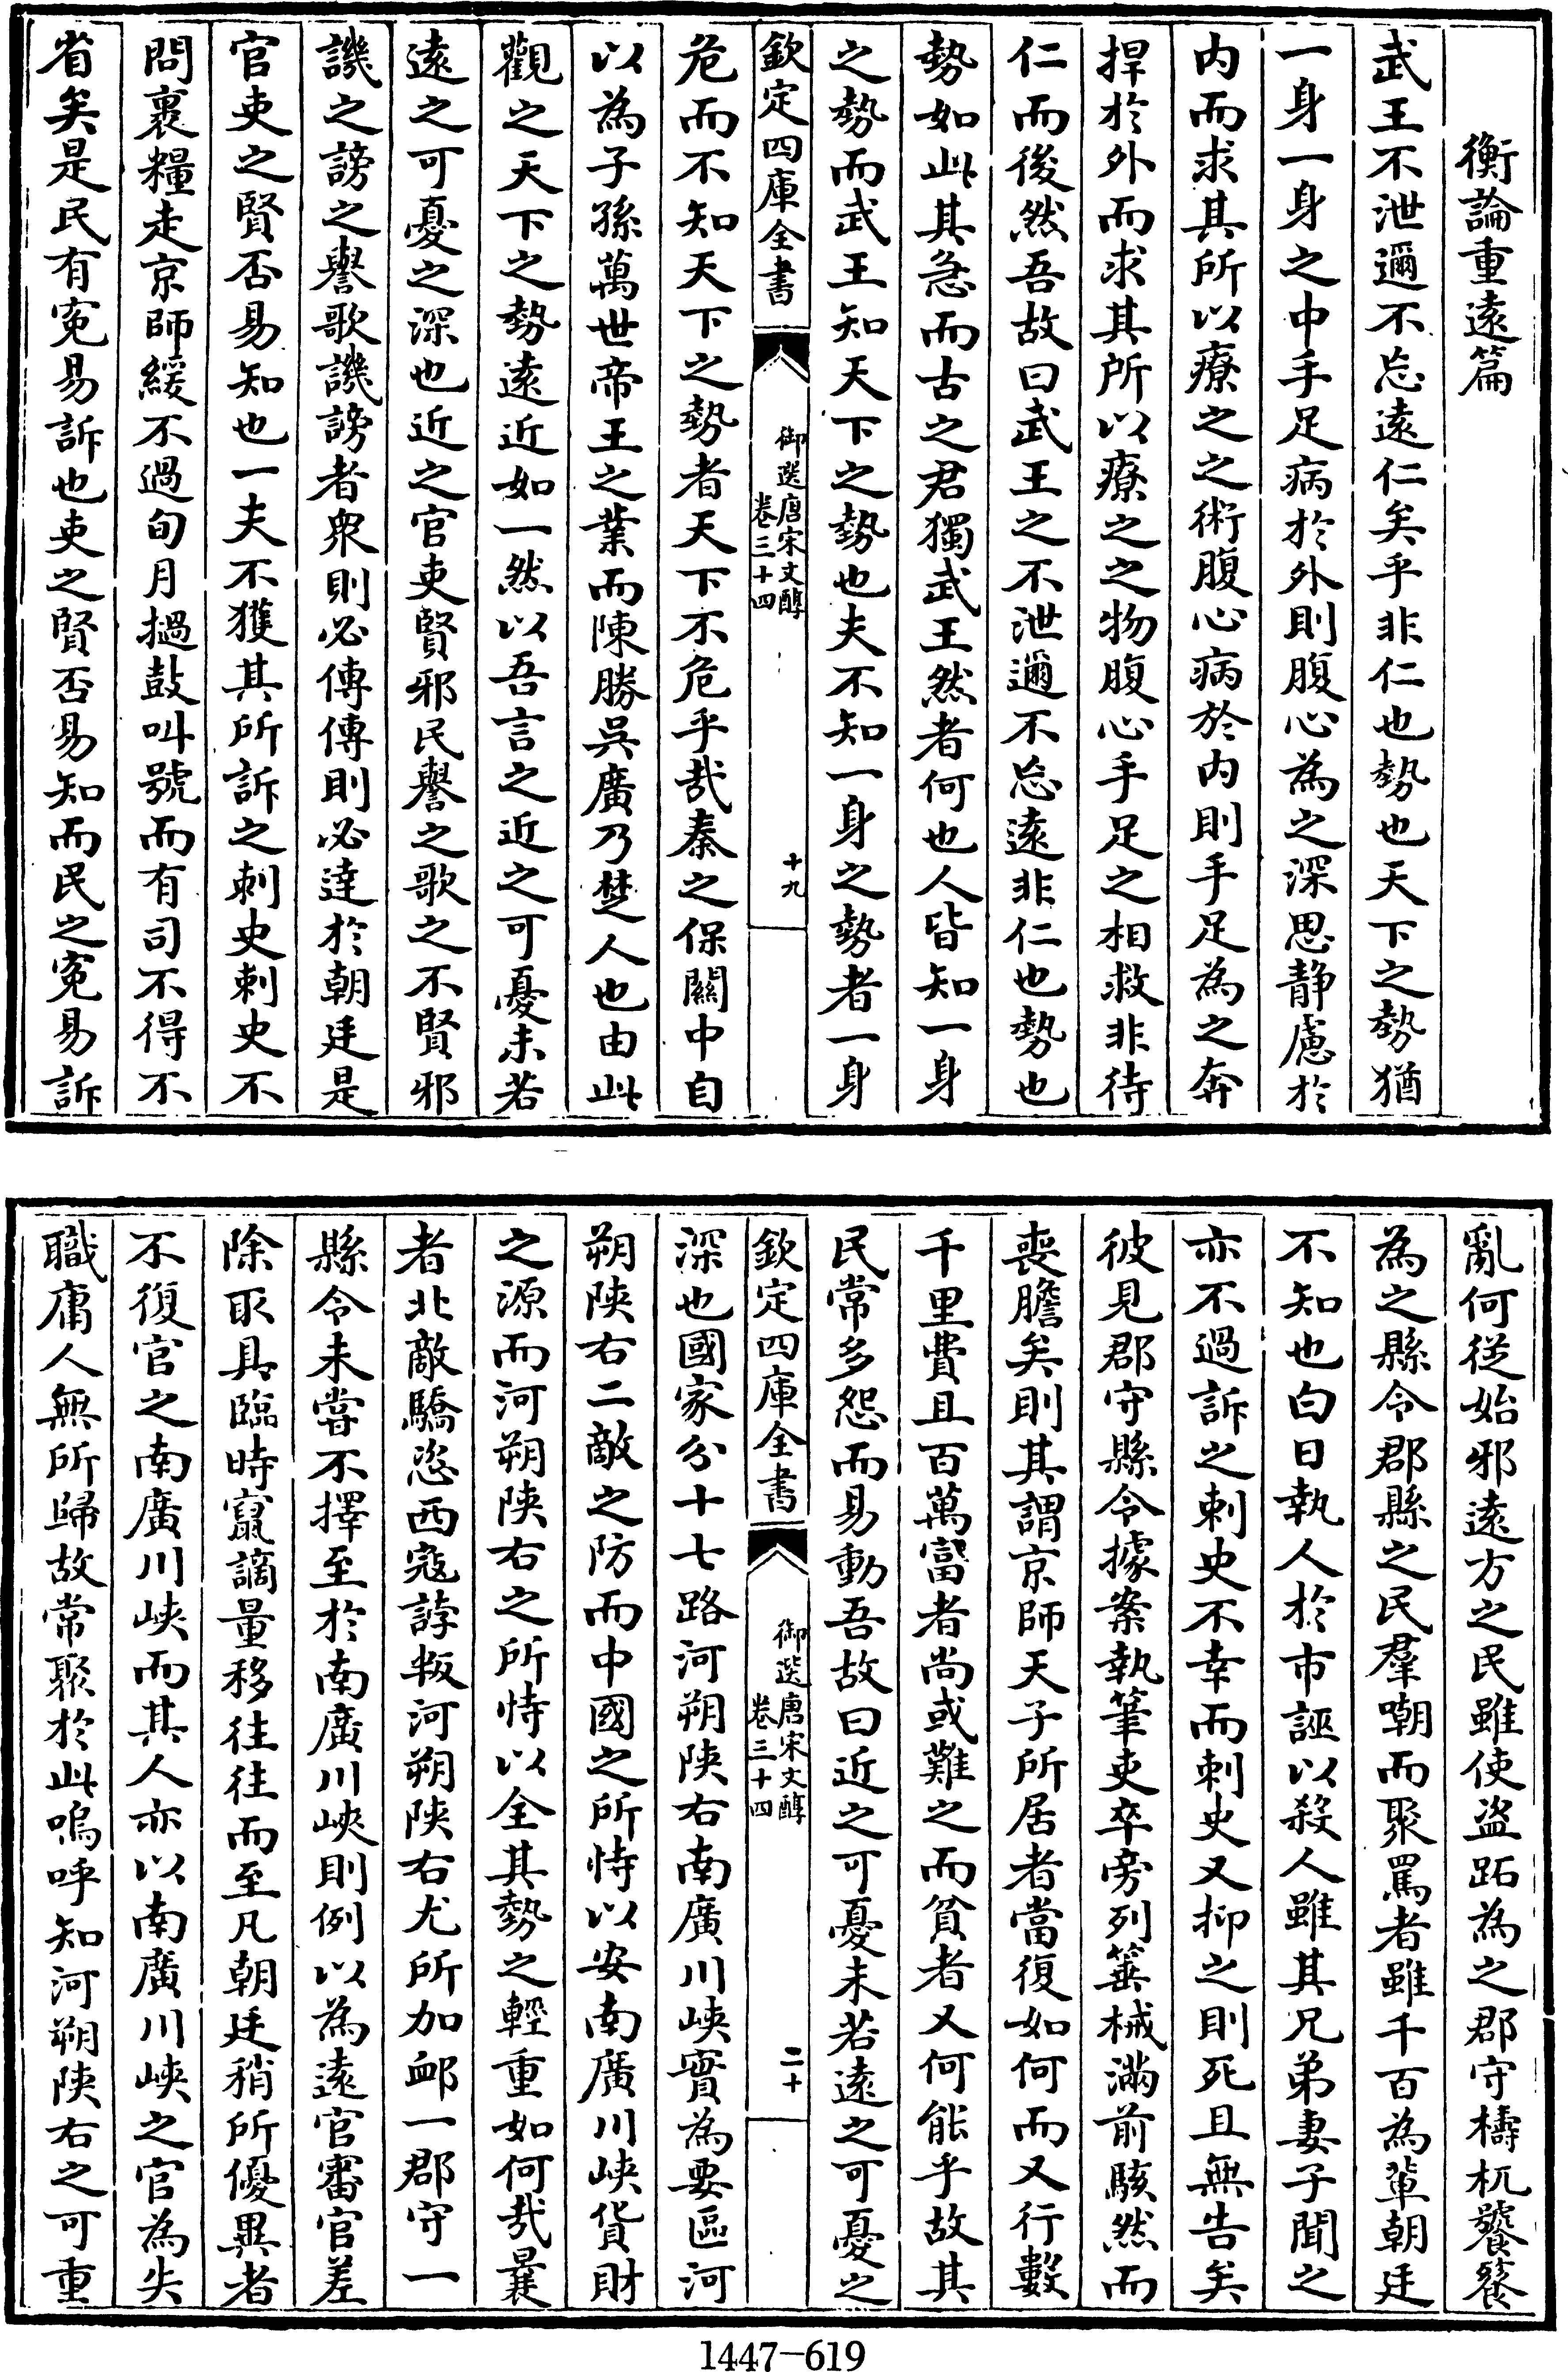 衡論重遠篇
武王不泄邇不忘遠仁矣乎非仁也勢也天下之勢猶
一身一身之中手足病於外則腹心為之深思静慮於
内而求其所以療之之術腹心病於内則手足為之奔
捍於外而求其所以療之之物腹心手足之相救非待
仁而後然吾故曰武王之不泄邇不忘遠非仁也勢也
勢如此其急而古之君獨武王然者何也人皆知一身
之勢而武王知天下之勢也夫不知一身之勢者一身
欽定四庫全書
御選唐宋文醇
卷三十四
十九
危而不知天下之勢者天下不危乎哉秦之保關中自
以為子孫萬世帝王之業而陳勝吳廣乃楚人也由此
觀之天下之勢遠近如一然以吾言之近之可憂未若
遠之可憂之深也近之官吏賢邪民譽之歌之不賢邪
譏之謗之譽歌譏謗者衆則必傳傳則必達於朝廷是
官吏之賢否易知也一夫不獲其所訴之刺史刺史不
問裹糧走京師緩不過旬月撾鼓叫號而有司不得不
省矣是民有寃易訴也吏之賢否易知而民之寃易訴
亂何從始邪遠方之民雖使盜跖為之郡守檮杌饕餮
為之縣令郡縣之民羣嘲而聚罵者雖千百為輩朝廷
不知也白日執人於市誣以殺人雖其兄弟妻子聞之
亦不過訴之刺史不幸而刺史又抑之則死且無告矣
彼見郡守縣令據案執筆吏卒旁列箠械滿前駭然而
喪膽矣則其謂京師天子所居者當復如何而又行數
千里費且百萬富者尚或難之而貧者又何能乎故其
民常多怨而易動吾故曰近之可憂未若遠之可憂之
欽定四庫全書
御選唐宋文醇
卷三十四
二十
深也國家分十七路河朔陜右南廣川峽實為要區河
朔陜右二敵之防而中國之所恃以安南廣川峽貨財
之源而河朔陜右之所恃以全其勢之輕重如何哉曩
者北敵驕恣西寇誖叛河朔陜右尤所加卹一郡守一
縣令未嘗不擇至於南廣川峽則例以為遠官審官差
除取具臨時竄謫量移往往而至凡朝廷稍所優異者
不復官之南廣川峽而其人亦以南廣川峽之官為失
職庸人無所歸故常聚於此嗚呼知河朔陜右之可重
1447-619